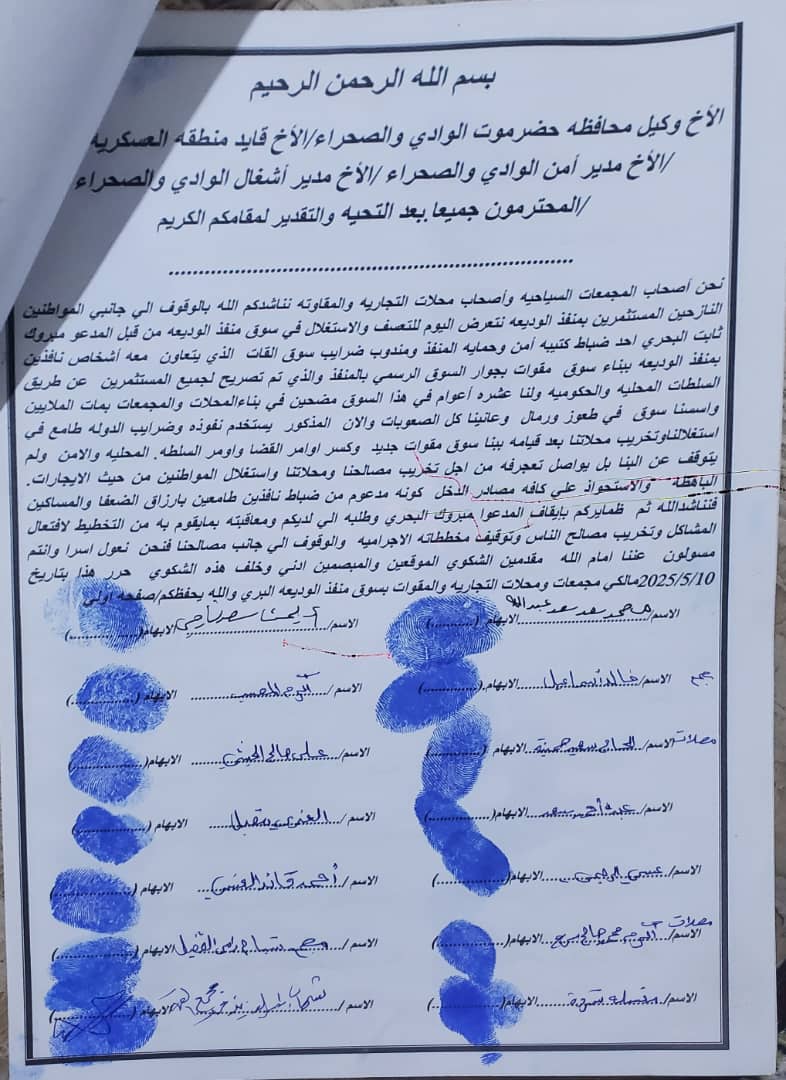 بسم الله الرحمن الرحيم
الأخ وكيل محافظه حضرموت الوادي والصحراء/الأخ قايد منطقه العسكريه
/الأخ مدير أمن الوادي والصحراء /الأخ مدير أشغال الوادي والصحراء
/المحترمون جميعا.بعد التحيه والتقدير لمقامكم الكريم
نحن أصحاب المجمعات السياحيه وأصحاب محلات التجاريه والمقاوته نناشدكم الله بالوقوف الي جانبي المواطنين
النازحين المستثمرين بمنفذ الوديعه نتعرض اليوم للتعصف والاستغلال في سوق منفذ الوديعه من قبل المدعو مبروك
ثابت البحري احد ضباط كتيبه أمن وحمايه المنفذ ومندوب ضرايب سوق القات الذي يتعاون معه أشخاص نافذين
بمنفذ الوديعه ببناء سوق مقوات بجوار السوق الرسمي بالمنفذ والذي تم تصريح لجميع المستثمرين عن طريق
السلطات المحليه والحكوميه ولنا عشره أعوام في هذا السوق مضحين في بناءالمحلات والمجمعات بمات الملايين
واسسنا سوق في طعوز ورمال وعانينا كل الصعوبات والان المذكور يستخدم نفوذه وضرايب الدوله طامع في
استغلالناوتخريب محلاتنا بعد قيامه ببنا سوق مقوات جديد وكسر اوامر القضا واومر السلطه. المحليه والامن ولم
يتوقف عن البنا بل يواصل تعجرفه من اجل تخريب مصالحنا ومحلاتنا واستغلال المواطنين من حيث الايجارات.
الباهظة والاستحواذ علي كافه مصادر الدخل كونه مدعوم من ضباط نافذين طامعين بارزاق الضعفا والمساكين
فنناشدالله ثم ظمايركم بإيقاف المدعوا مبروك البحري وطلبه الي لديكم ومعاقبته بمايقوم به من التخطيط لافتعال
المشاكل وتخريب مصالح الناس وتوقيف مخططاته الاجراميه والوقوف الي جانب مصالحنا فنحن نعول اسرا وانتم
مسولون عننا امام الله مقدمين الشكوي الموقعين والمبصمين ادني وخلف هذه الشكوي حرر هذا بتاريخ
2025/5/10مالكي مجمعات ومحلات التجاريه والمقوات بسوق منفذ الوديعه البري والله يحفظكم/صفحه اولي
الاسم/محمد سعد سعد عبدالله الابهام (..........) الاسم/ الابهام(..........)
الاسم/خالد اسماعيل الابهام.(..........) الاسم/ الابهام (..........)
محلات الاسم/ الابهام (..........) الاسم/علي صالح الابهام(..........)
الاسم/عبده أحمد الابهام(..........) الاسم/ الابهام (..........)
الاسم/عيسى الابهام(..........) الاسم/أحمد قائد العنسي الابهام (..........)
محلات الاسم/ الابهام(..........) الاسم/ الابهام (..........)
الاسم/ الابهام(..........) الاسم/ الابهام (..........)